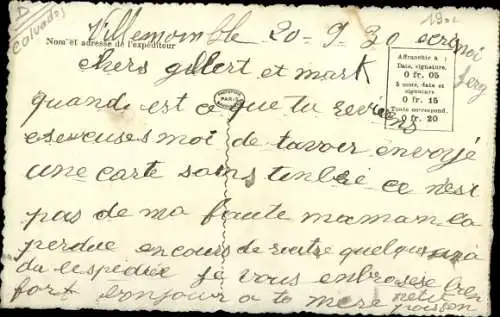 D
Calvados
Villemomble 20 - 9 - 30 ecrs moi
Nom et adresse de l'expéditeur
chers gilbert et mark
Affranchir à :
Date, signature.
0 fr. 05
5 mots, date et
signature
0 fr. 15
Toute correspond.
0 fr. 20
PARIS
quand est ce que tu reviens
escuses moi de tavoir envoyé
une carte sans tinbre ce n'est
pas de ma faute maman la
perdue en cours de route quelqun a
du lespédiée je vous enbrasse bien
fort bonjour a ta mere
petit
poisson